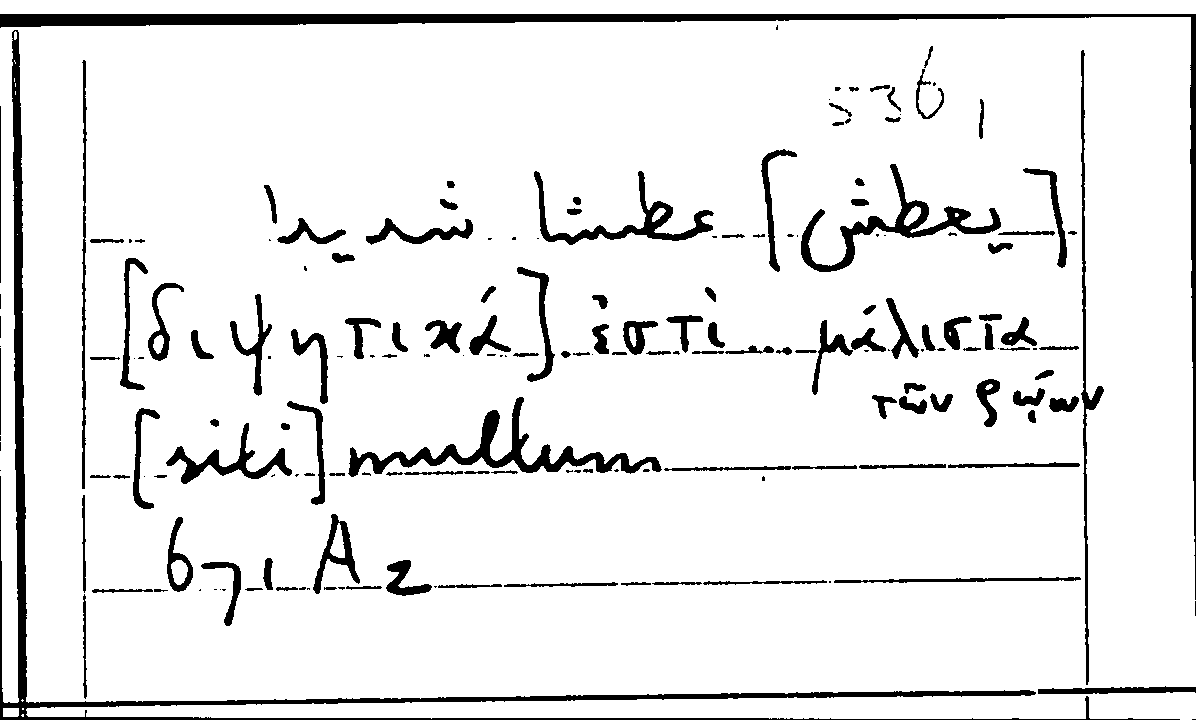 536,
[يعطش] عطشا شديدا
[διψητικά] . ἐστὶ ... μάλιστα
τῶν ζῴων
[siti] multum
671 A 2